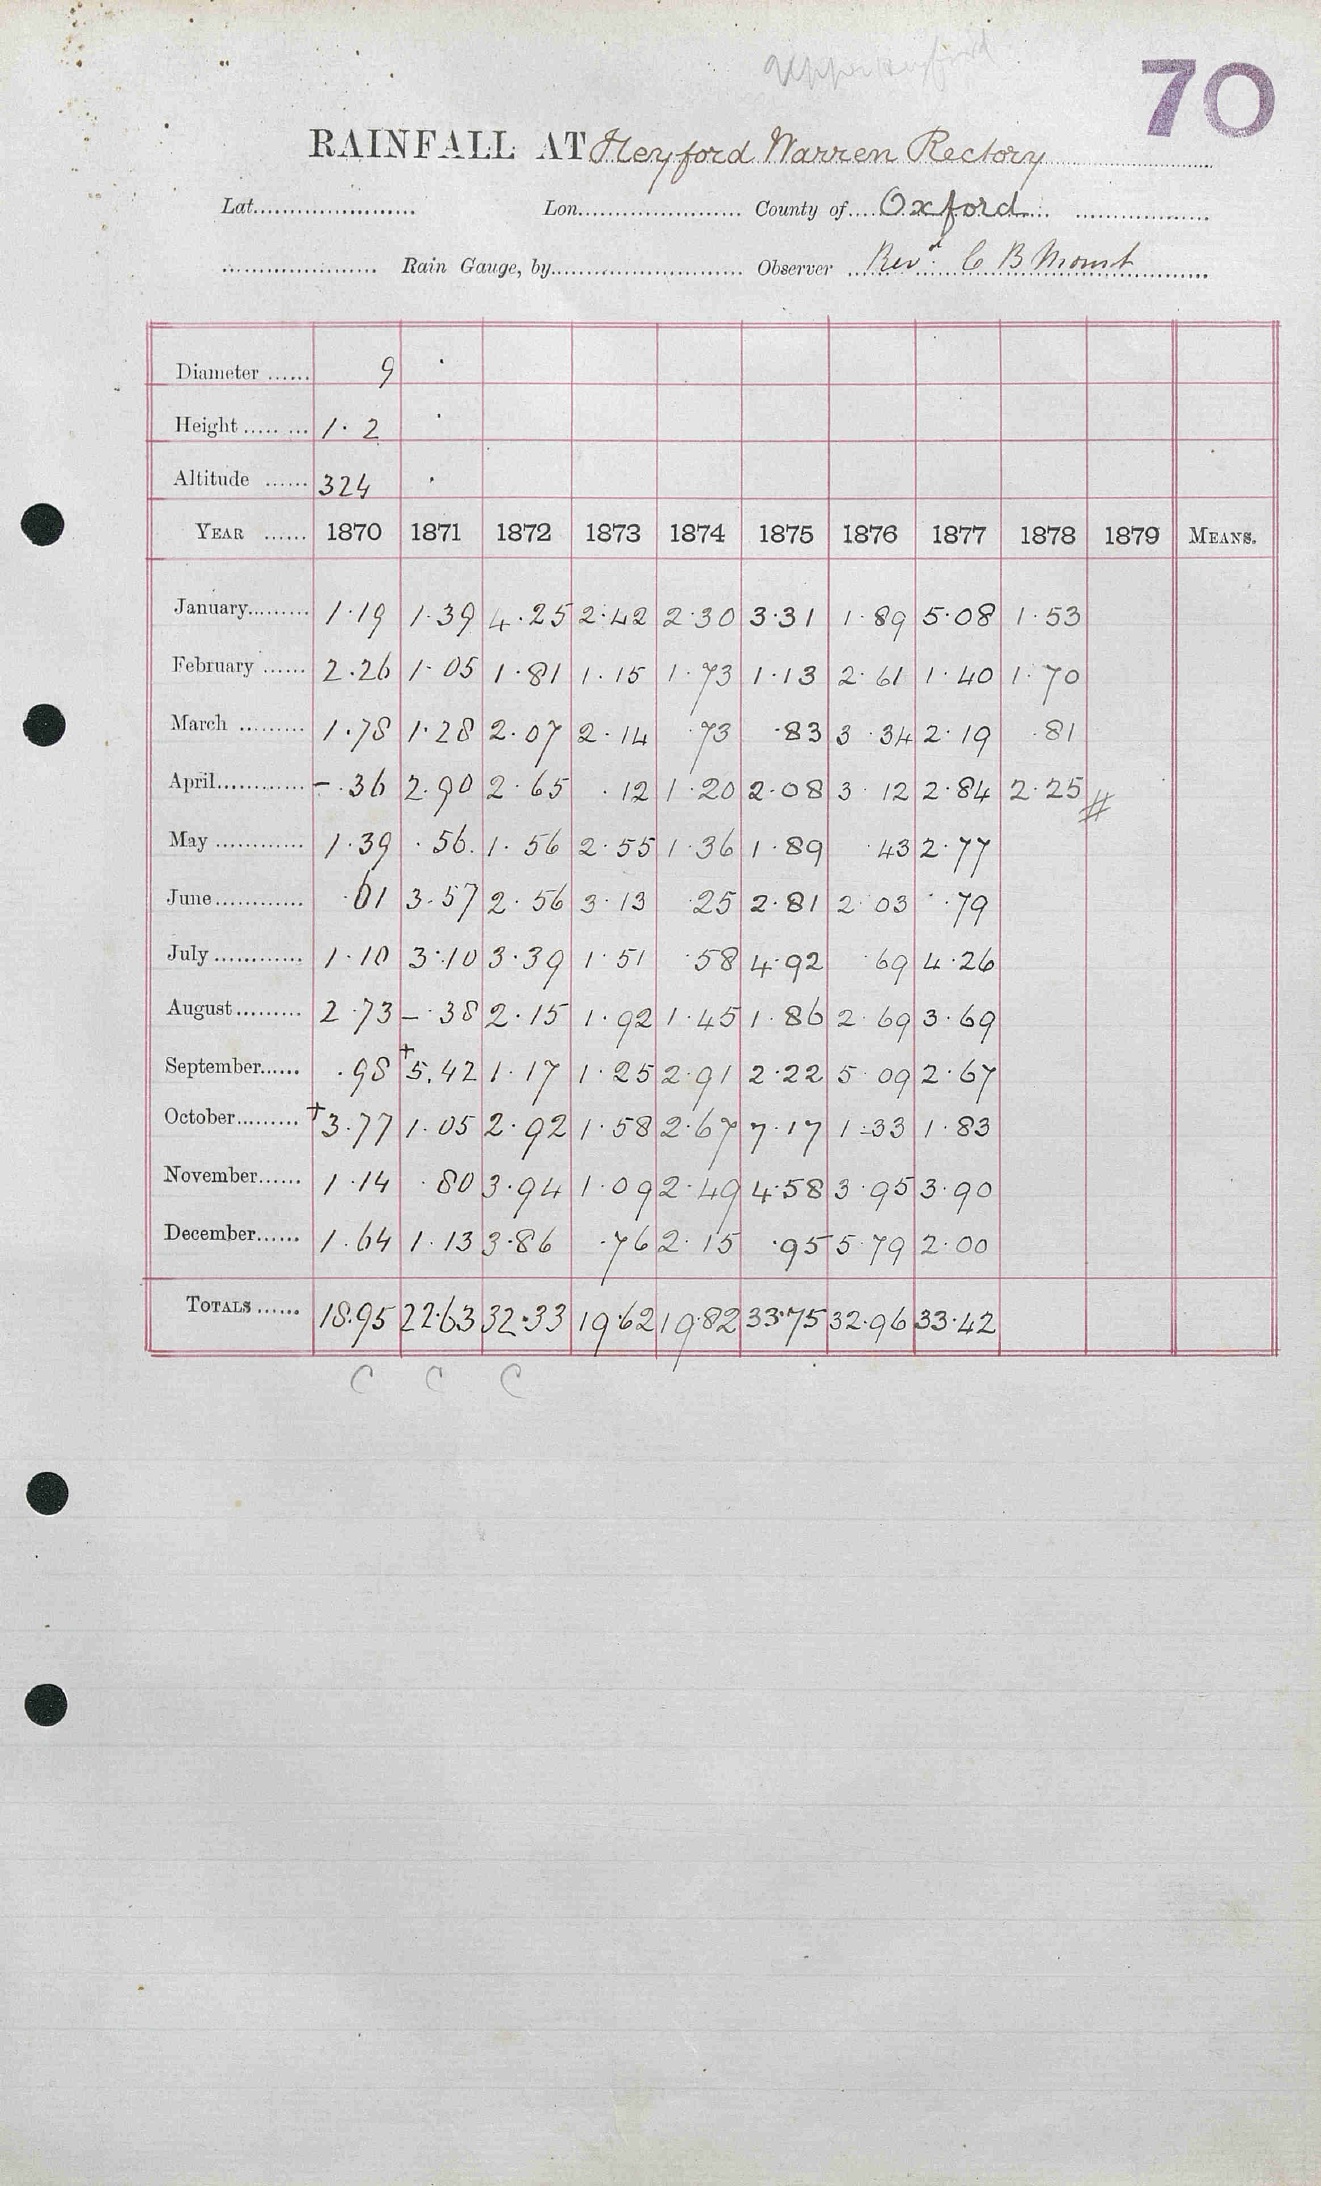 Upper Heyford
70
RAINFALL AT Heyford Warren Rectory
Lat. Lon. County of Oxford
Rain Gauge, by Observer Revd. C B Mount
Diameter 9 ·
Height 1·2 ·
Altitude 324 ·
YEAR 1870 1871 1872 1873 1874 1875 1876 1877 1878 1879 MEANS.
January 1·19 1·39 4·25 2·42 2·30 3·31 1·89 5·08 1·53
February 2·26 1·05 1·81 1·15 1·73 1·13 2·61 1·40 1·70
March 1·78 1·28 2·07 2·14 ·73 ·83 3·34 2·19 ·81
April -·36 2·90 2·65 ·12 1·20 2·08 3·12 2·84 2·25 #
May 1·39 ·56 1·56 2·55 1·36 1·89 ·43 2·77
June ·61 3·57 2·56 3·13 ·25 2·81 2·03 ·79
July 1·10 3·10 3·39 1·51 ·58 4·92 ·69 4·26
August 2·73 -·38 2·15 1·92 1·45 1·86 2·69 3·69
September ·98 +5.42 1·17 1·25 2·91 2·22 5·09 2·67
October +3·77 1·05 2·92 1·58 2·67 7·17 1·33 1·83
November 1·14 ·80 3·94 1·09 2·49 4·58 3·95 3·90
December 1·64 1·13 3·86 ·76 2·15 ·95 5·79 2·00
TOTALS 18·95 22·63 32·33 19·62 19·82 33·75 32·96 33·42
C C C